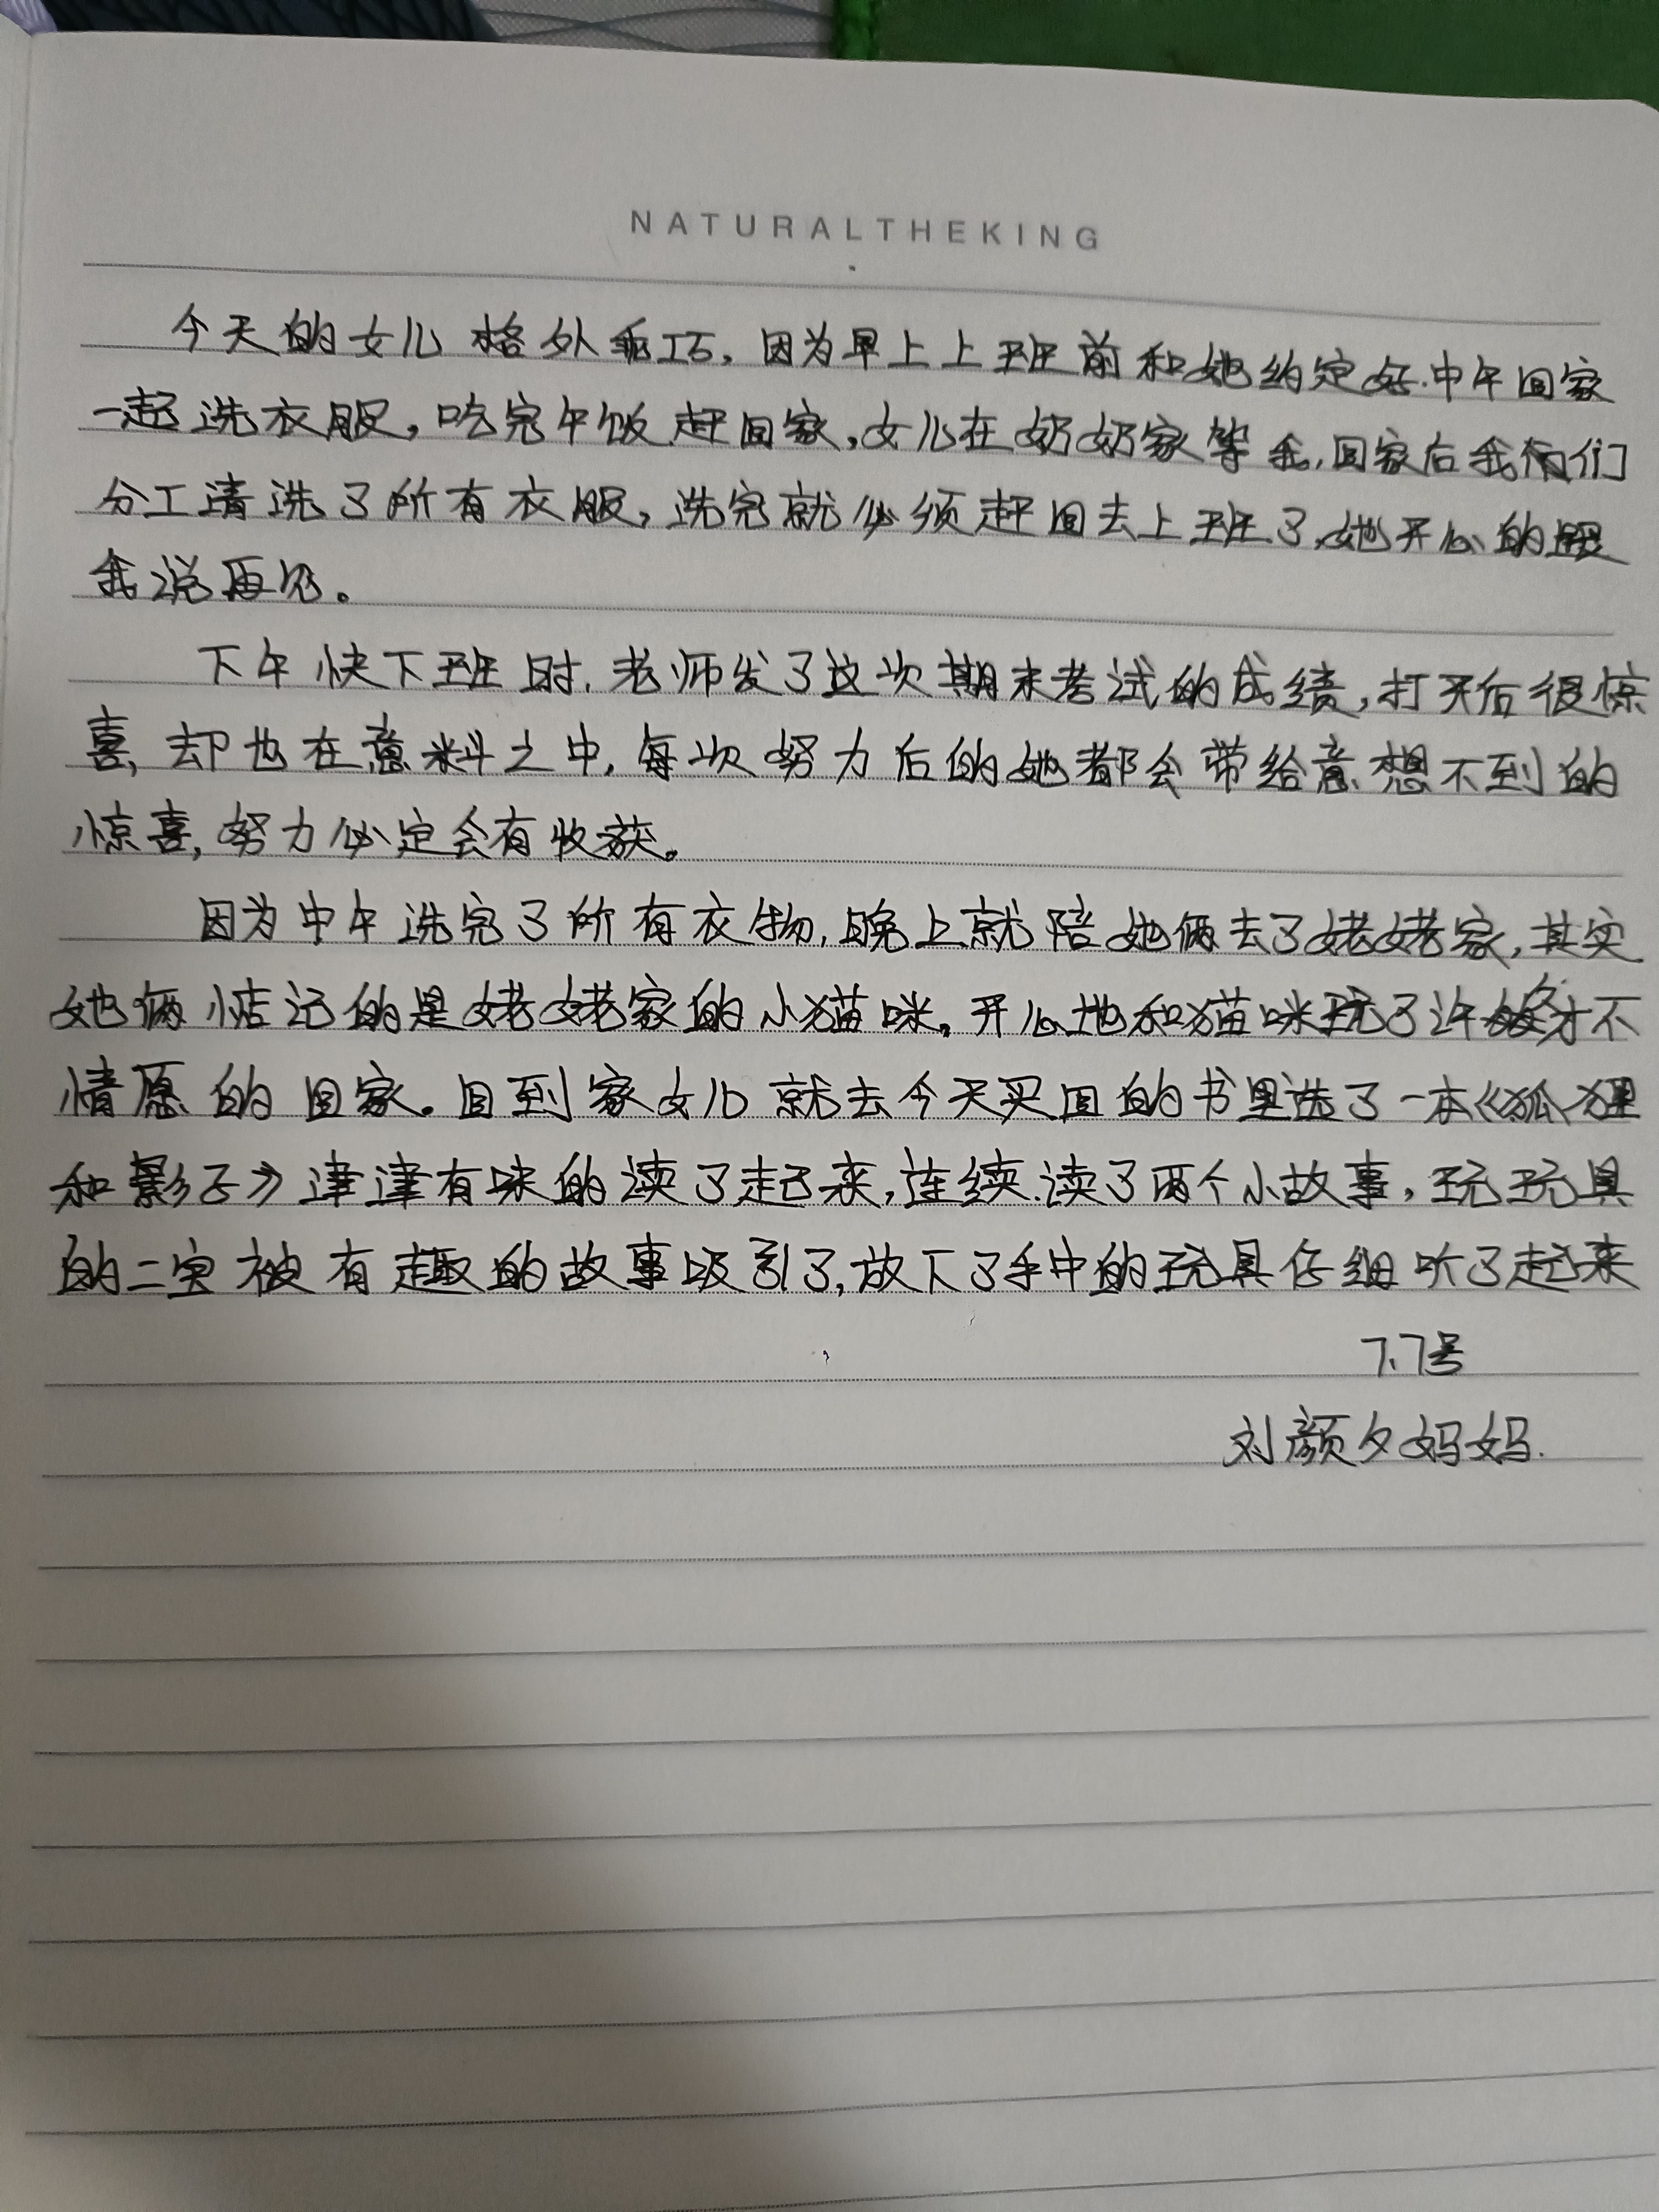 NATURALTHEKING
今天的女儿格外乖巧，因为早上上班前和她约定好.中午回家
一起洗衣服，吃完午饭赶回家，女儿在奶奶家等我，回家后我们
分工清洗了所有衣服，洗完就必须赶回去上班了，她开心的跟
我说再见。
下午快下班时，老师发了这次期末考试的成绩，打开后很惊
喜，却也在意料之中，每次努力后的她都会带给意想不到的
惊喜，努力必定会有收获。
因为中午洗完了所有衣物，晚上就陪她俩去了姥姥家，其实
她俩惦记的是姥姥家的小猫咪。开心地和猫咪玩了许久才不
情愿的回家。回到家女儿就去今天买回的书里选了一本《狐狸
和影子》津津有味的读了起来，连续读了两个小故事，玩玩具
的二宝被有趣的故事吸引了，放下了手中的玩具仔细听了起来
7.7号
刘颜夕妈妈.